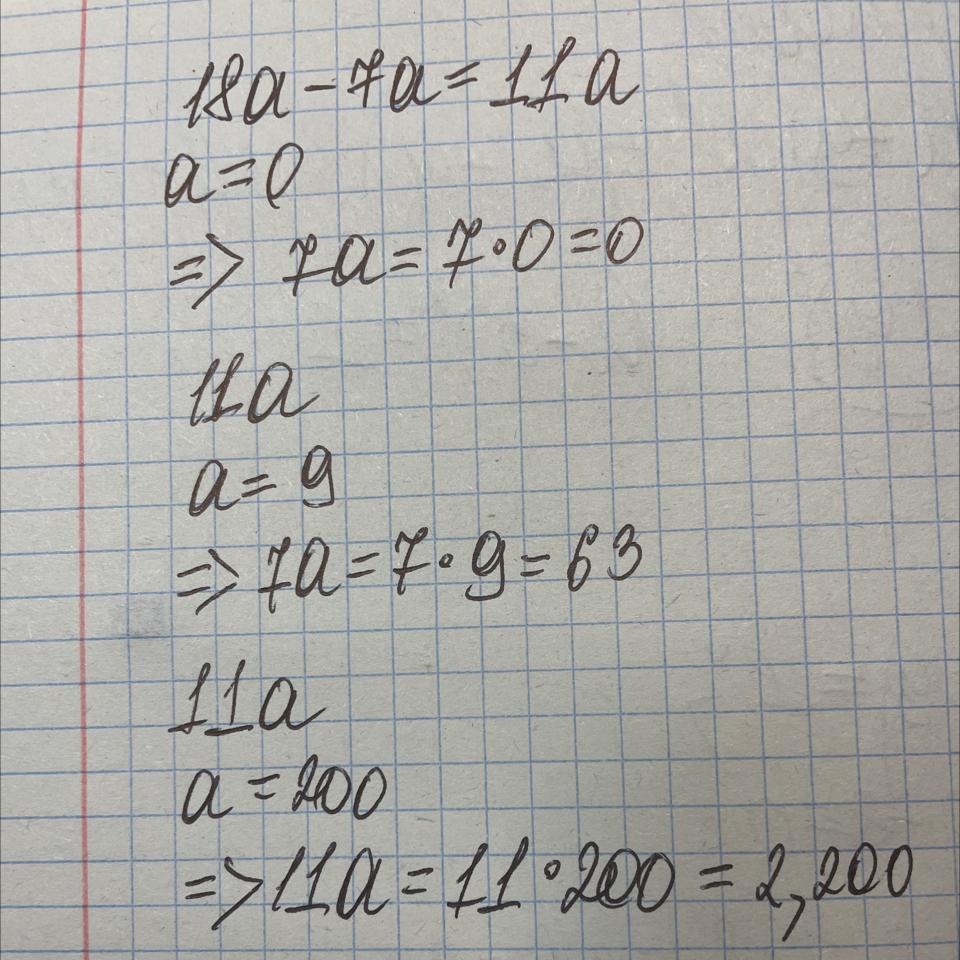 18a - 7a = 11a
a = 0
=> 7a = 7·0 = 0
11a
a = 9
=> 7a = 7·9 = 63
11a
a = 200
=> 11a = 11·200 = 2,200